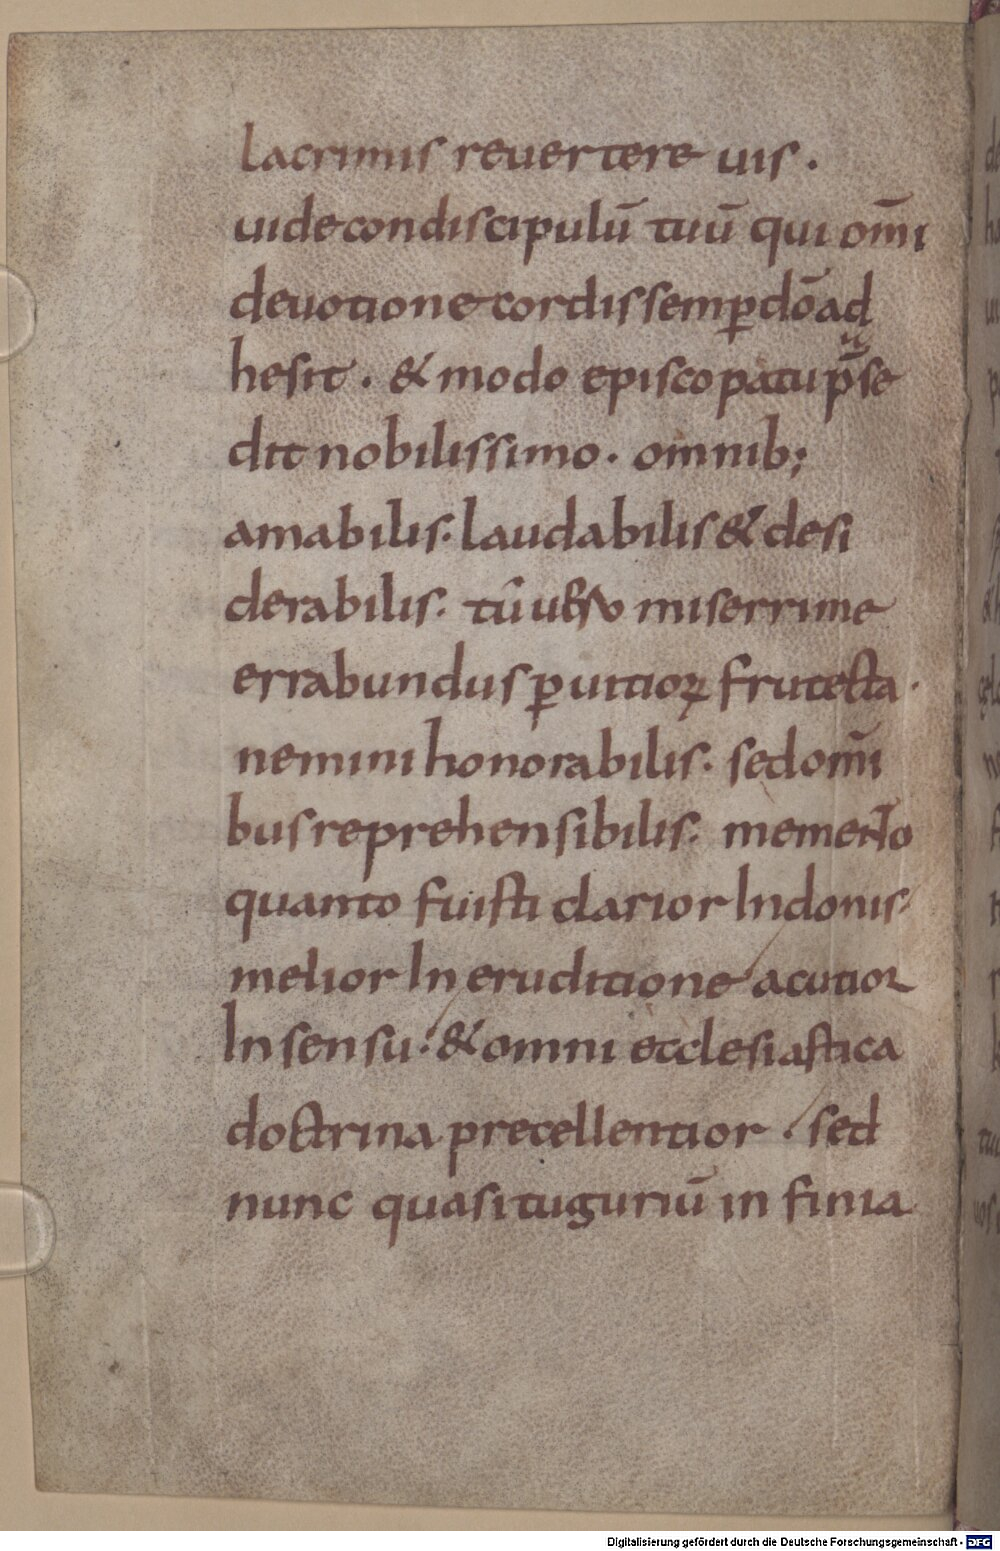 lacrimis reuertere uis .
uide condiscipulū tuū qui om̄i
deuotione cordis semp̲ dō ad
hesit . & modo episcopatu p̄se
dit nobilissimo . omnib;
amabilis . laudabilis & desi
derabilis . tū
miserrime
errabundus p̲ uitioꝝ frutecta .
nemini honorabilis . sed om̄i
bus reprehensibilis . memento
quanto fuisti clarior In donis
melior In eruditione acutior
In sensu . & omni ecclesiastica
doctrina precellentior . sed
nunc quasi tuguriū in finia
Digitalisierung gefördert durch die Deutsche Forschungsgemeinschaft - DFG